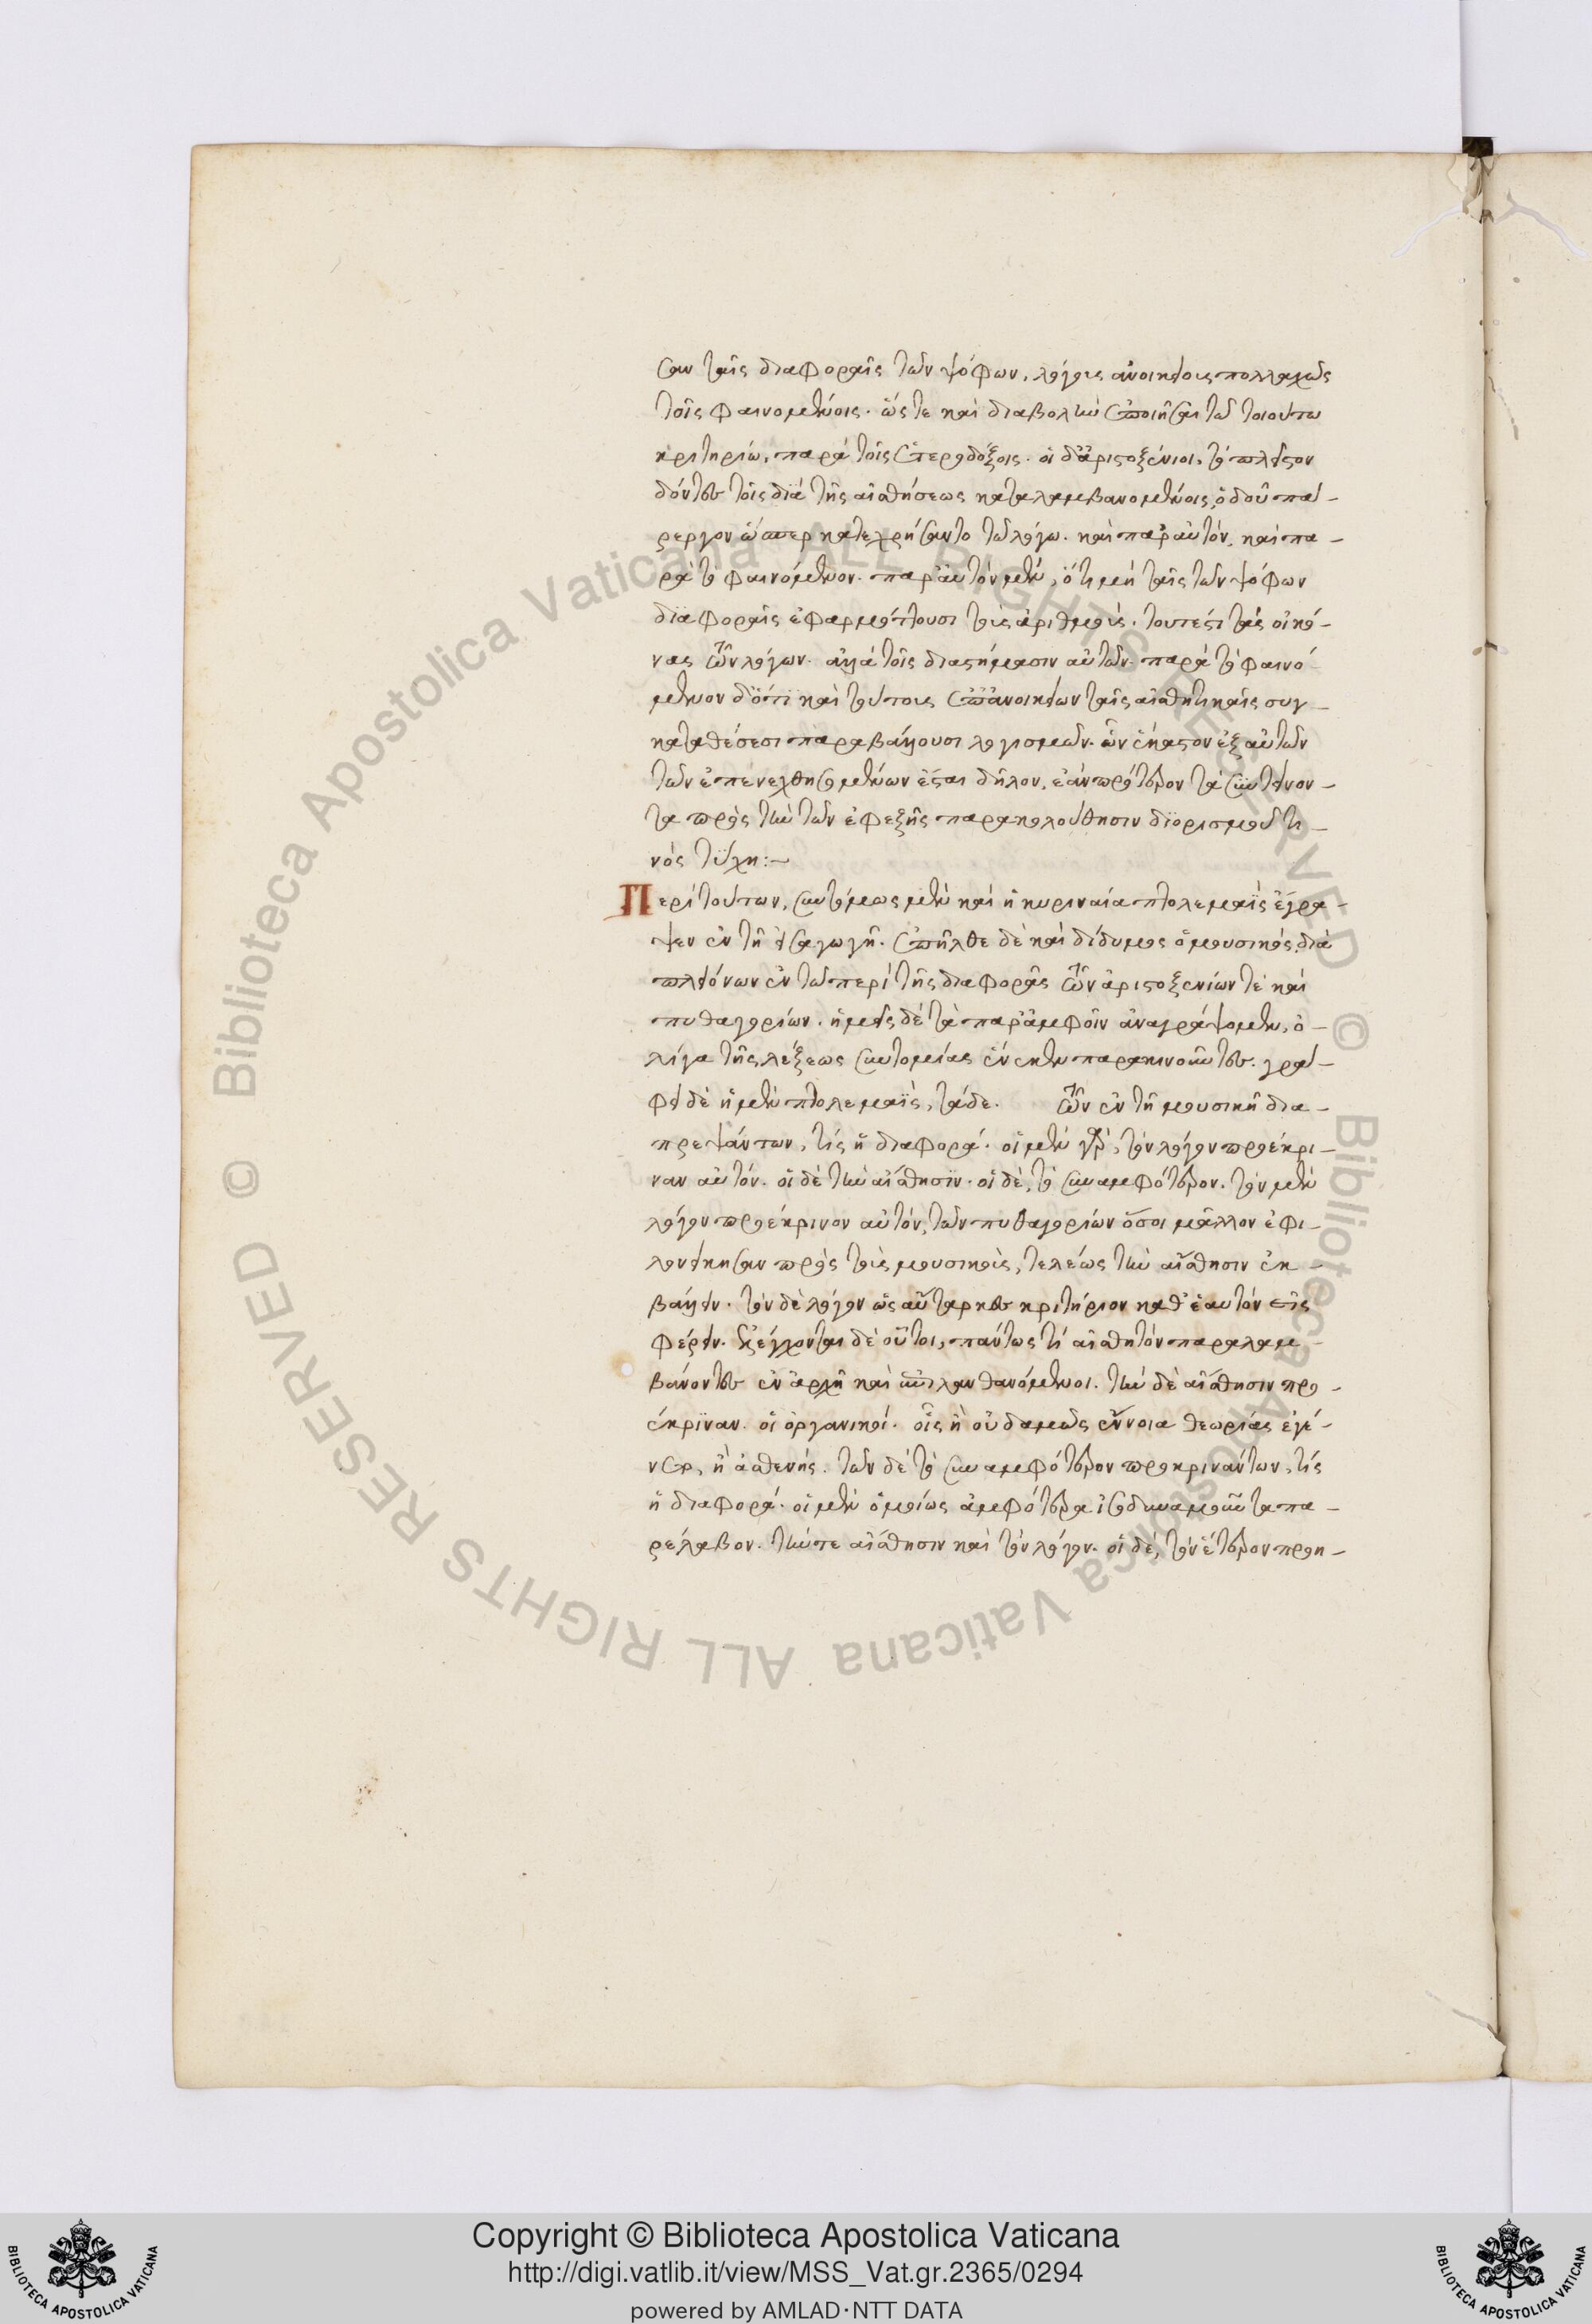 σαν ταῖς διαφοραῖς τῶν ψόφων, λόγους ἀνοικείους πολλαχῶς
τοῖς φαινομένοις. ὥς τε καὶ διαβολὴν ἐμποιῆσαι τῶ τοιούτω
κριτηρίω, παρὰ τοῖς ἑτεροδόξοις. οἱ δ' ἀριστοξένιοι, τὸ πλεῖστον
δόντες τοῖς διὰ τῆς αἰσθήσεως καταλαμβανομένοις, ὁδοῦ πά-
ρεργον ὥσπερ κατεχρήσαντο τῶ λόγω. καὶ παρ' αὐτὸν, καὶ πα-
ρὰ τὸ φαινόμενον. παρ' αὐτὸν μὲν, ὅτι μὴ ταῖς τῶν ψόφων
διαφοραῖς ἐφαρμόττουσι τοὺς ἀριθμοὺς. τουτέστι τὰς εἰκό-
νας τῶν λόγων. ἀλλὰ τοῖς διαστήμασιν αὐτῶν. παρὰ τὸ φαινό-
μενον δ' ὅτι καὶ τούτους ἐπ' ἀνοικείων ταῖς αἰσθητικαῖς συγ-
καταθέσεσι παραβάλλουσι λογισμῶν. ὧν ἕκαστον ἐξ αὐτῶν
τῶν ἐπενεχθησομένων ἔσται δῆλον, ἐὰν πρότερον τὰ συντείνον-
τα πρὸς τὴν τῶν ἐφεξῆς παρακολούθησιν διορισμοῦ τι-
νὸς τύχη:-
Περὶ τούτων, συντόμως μὲν καὶ ἡ κυριναία πτολεμαῒς ἔγρα-
ψεν ἐν τῆ εἰσαγωγῆ. ἐπῆλθε δὲ καὶ δίδυμος ὁ μουσικός, διὰ
πλειόνων ἐν τῶ περὶ τῆς διαφορᾶς τῶν ἀριστοξενίων τὲ καὶ
πυθαγορίων. ἡμεῖς δὲ τὰ παρ' ἀμφοῖν ἀναγράψομεν, ὀ-
λίγα τῆς λέξεως συντομίας ἕνεκεν παρακινοῦντες. γρά-
φει δὲ ἡ μὲν πτολεμαῒς, τάδε. τῶν ἐν τῆ μουσικῆ δια-
πρεψάντων, τίς ἡ διαφορά. οἱ μὲν γὰρ, τὸν λόγον προέκρι-
ναν αὐτόν. οἱ δὲ τὴν αἴσθησιν. οἱ δὲ, τὸ συναμφότερον. τὸν μὲν
λόγον προέκρινον αὐτόν, τῶν πυθαγορίων ὅσοι μᾶλλον ἐφι-
λονείκησαν πρὸς τοὺς μουσικοὺς, τελέως τὴν αἴσθησιν ἐκ-
βάλλειν. τὸν δὲ λόγον ὡς αὔταρκες κριτήριον καθ' ἑαυτὸν εἰς
φέρειν. ἐξελέγχονται δὲ οὗτοι, πάντως τὶ αἰσθητὸν παραλαμ-
βάνοντες ἐν ἀρχῆ καὶ ἐπιλανθανόμενοι. τὴν δὲ αἴσθησιν προ-
έκριναν. οἱ ὀργανικοί. οἷς ἢ οὐδαμῶς ἔννοια θεωρίας ἐγέ-
νετο, ἢ ἀσθενής. τῶν δὲ τὸ συναμφότερον προκρινάντων, τίς
ἡ διαφορά. οἱ μὲν ὁμοίως ἀμφότερα ἰσοδυναμοῦντα πα-
ρέλαβον. τήν τε αἴσθησιν καὶ τὸν λόγον. οἱ δὲ, τὸν ἕτερον προη-
© Biblioteca Apostolica Vaticana ALL RIGHTS RESERVED © Biblioteca Apostolica Vaticana ALL RIGHTS RESERVED
Copyright © Biblioteca Apostolica Vaticana
http://digi.vatlib.it/view/MSS_Vat.gr.2365/0294
powered by AMLAD·NTT DATA
BIBLIOTECA APOSTOLICA VATICANA
BIBLIOTECA APOSTOLICA VATICANA